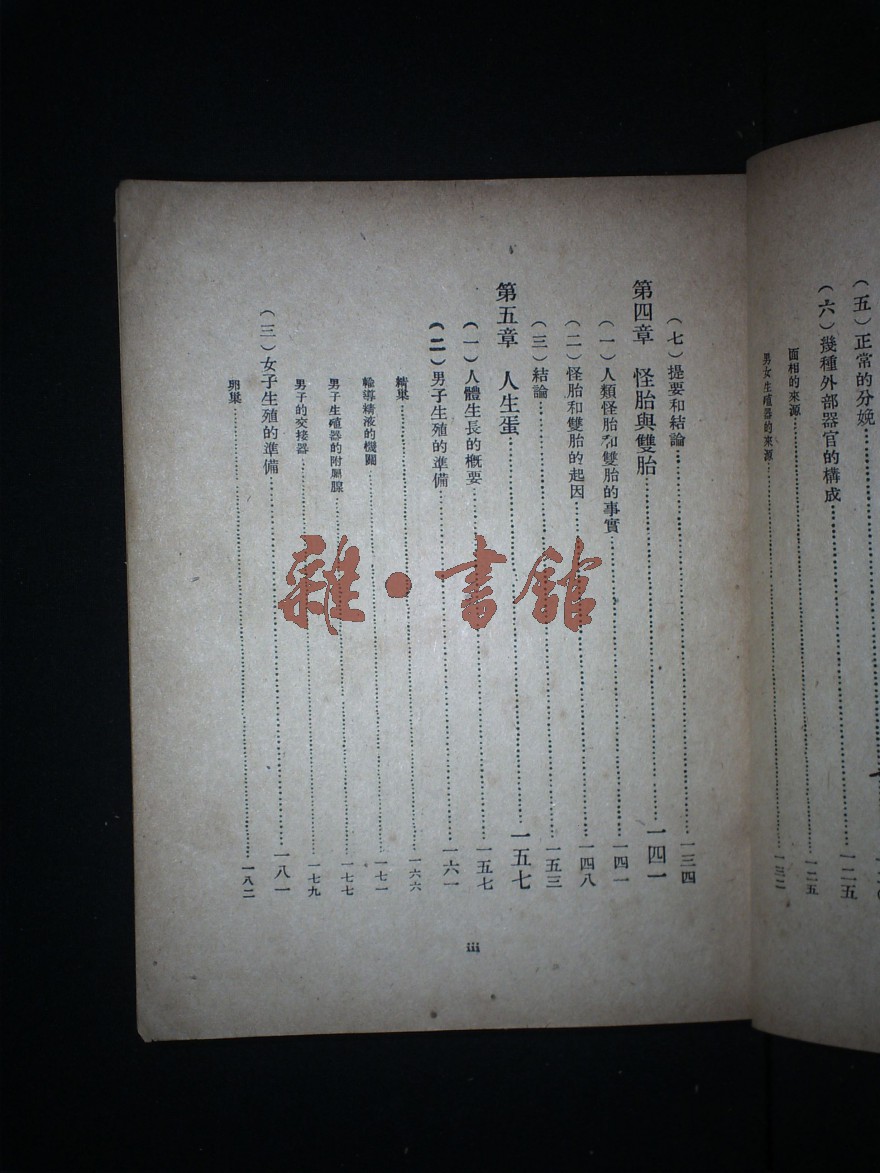 （五）正常的分娩
（六）幾種外部器官的構成 一二五
面相的來源 一二五
男女生殖器的來源 一三二
（七）提要和結論 一三四
第四章 怪胎與雙胎 一四一
（一）人類怪胎和雙胎的事實 一四一
（二）怪胎和雙胎的起因 一四八
（三）結論 一五三
第五章 人生蛋 一五七
（一）人體生長的概要 一五七
（二）男子生殖的準備 一六一
精巢 一六六
輸導精液的機關 一七一
男子生殖器的附屬腺 一七七
男子的交接器 一七九
（三）女子生殖的準備 一八一
卵巢 一八二
iii
雜·書館